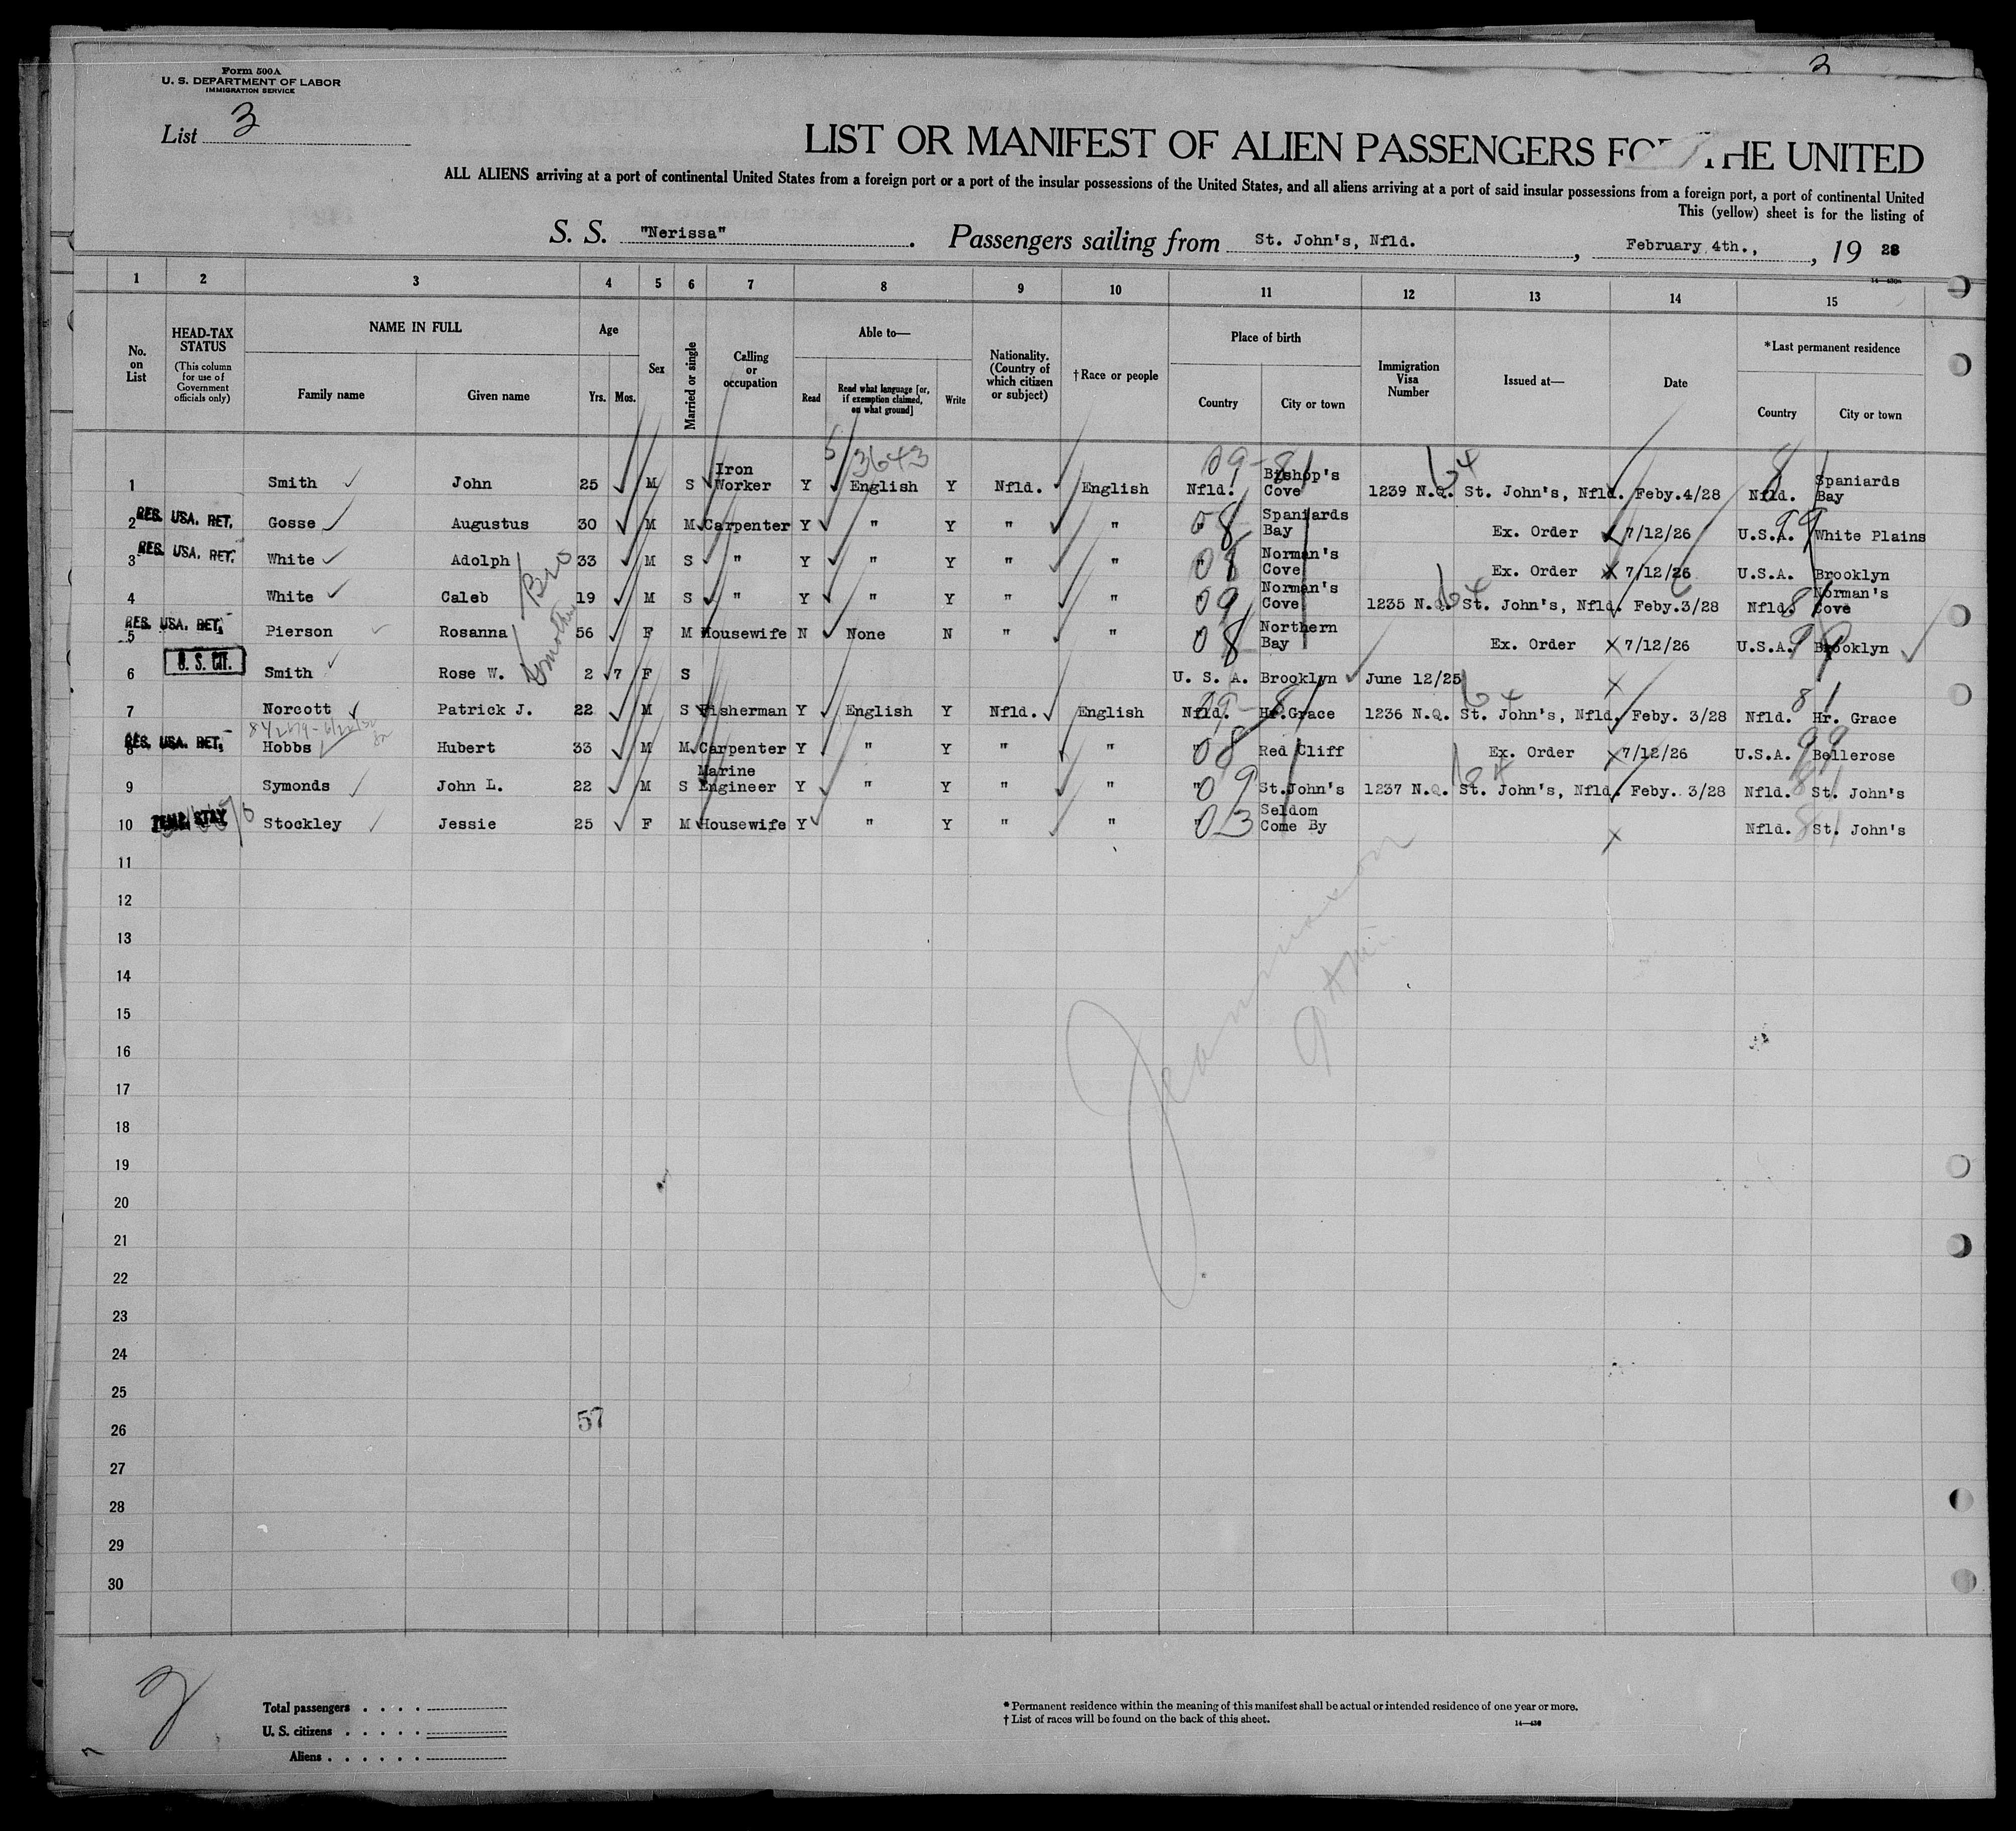 Form 500A
U. S. DEPARTMENT OF LABOR
IMMIGRATION SERVICE
3
List 3
LIST OR MANIFEST OF ALIEN PASSENGERS FOR THE UNITED
ALL ALIENS arriving at a port of continental United States from a foreign port or a port of the insular possessions of the United States, and all aliens arriving at a port of said insular possessions from a foreign port, a port of continental United
This (yellow) sheet is for the listing of
S. S. "Nerissa". Passengers sailing from St. John's, Nfld., February 4th., , 19 28
1 2 3 4 5 6 7 8 9 10 11 12 13 14 15
No. on List
HEAD-TAX STATUS
(This column for use of Government officials only)
NAME IN FULL
Family name Given name
Age
Yrs. Mos.
Sex
Married or single
Calling or occupation
Able to—
Read
Read what language [or, if exemption claimed, on what ground]
Write
Nationality. (Country of which citizen or subject)
†Race or people
Place of birth
Country City or town
Immigration Visa Number
Issued at—
Date
*Last permanent residence
Country City or town
5 3643 09-81 64 8
1 Smith John 25 M S Iron Worker Y English Y Nfld. English Nfld. Bishop's Cove 1239 N.Q. St. John's, Nfld. Feby.4/28 Nfld. Spaniards Bay
2 RES. USA. RET. Gosse Augustus 30 M M Carpenter Y " Y " " " 08 Spaniards Bay Ex. Order 7/12/26 U.S.A. 99 White Plains
3 RES. USA. RET. White Adolph 33 M S " Y " Y " " " 08 Norman's Cove Ex. Order 7/12/26 U.S.A. Brooklyn
Bro
4 White Caleb 19 M S " Y " Y " " " 09 Norman's Cove 1235 N.Q. 64 St. John's, Nfld. Feby.3/28 Nfld. 8 Norman's Cove
5 RES. USA. RET. Pierson Rosanna 56 F M Housewife N None N " " " 08 Northern Bay Ex. Order 7/12/26 U.S.A. 99 Brooklyn
6 U. S. CIT. Smith Rose W. 2 7 F S U. S. A. Brooklyn June 12/25
7 Norcott Patrick J. 22 M S Fisherman Y English Y Nfld. English Nfld. 09-81 Hr.Grace 1236 N.Q. 64 St. John's, Nfld. Feby. 3/28 Nfld. 81 Hr. Grace
8 RES. USA. RET. Hobbs Hubert 33 M M Carpenter Y " Y " " " 08 Red Cliff Ex. Order 7/12/26 U.S.A. 99 Bellerose
9 Symonds John L. 22 M S Marine Engineer Y " Y " " " 09 St.John's 1237 N.Q. 64 St. John's, Nfld. Feby. 3/28 Nfld. 81 St. John's
10 TEMP. STAY Stockley Jessie 25 F M Housewife Y " Y " " " 03 Seldom Come By Nfld. 81 St. John's
11
12
13
14
15
16
17
18
19
20
21
22
23
24
25
57
26
27
28
29
30
Total passengers . . . .
U. S. citizens . . . . .
Aliens . . . . . .
* Permanent residence within the meaning of this manifest shall be actual or intended residence of one year or more.
† List of races will be found on the back of this sheet.